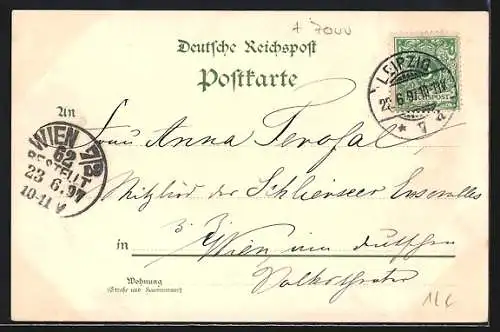 + 7000
Deutsche Reichspost
Postkarte
LEIPZIG
22 6.97.10-11V.
* 7 a
An
WIEN 7/2
62
BESTELLT
23.6.97
10-11 V
Frau Anna Terofal
Mitglied des Schlierseer Ensembles
z. Z.
in Wien im deutschen
Volkstheater
Wohnung
(Straße und Hausnummer)